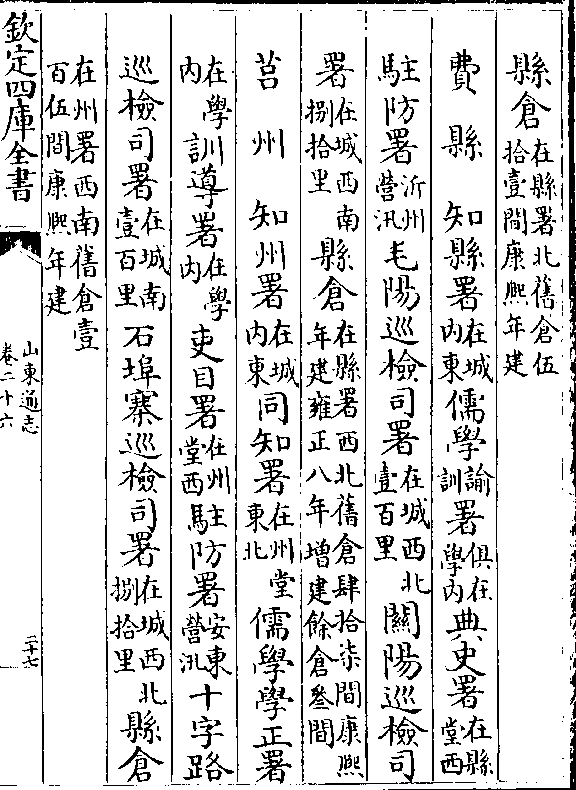 縣倉在縣署北舊倉伍拾壹間康熙年建
費縣　知縣署在城內東儒學諭訓署俱在學內典史署在縣堂西
駐防署沂州營汛毛陽巡檢司署在城西北壹百里關陽巡檢司
署在城西南捌拾里縣倉在縣署西北舊倉肆拾柒間康熙年建雍正八年增建餘倉叁間
莒州　知州署在城內東同知署在州堂東北儒學學正署
在學內訓導署在學內吏目署在州堂西駐防署安東營汛十字路
巡檢司署在城南壹百里石埠寨巡檢司署在城西北捌拾里縣倉
在州署西南舊倉壹百伍間康熙年建
欽定四庫全書
山東通志
卷二十六
二十七